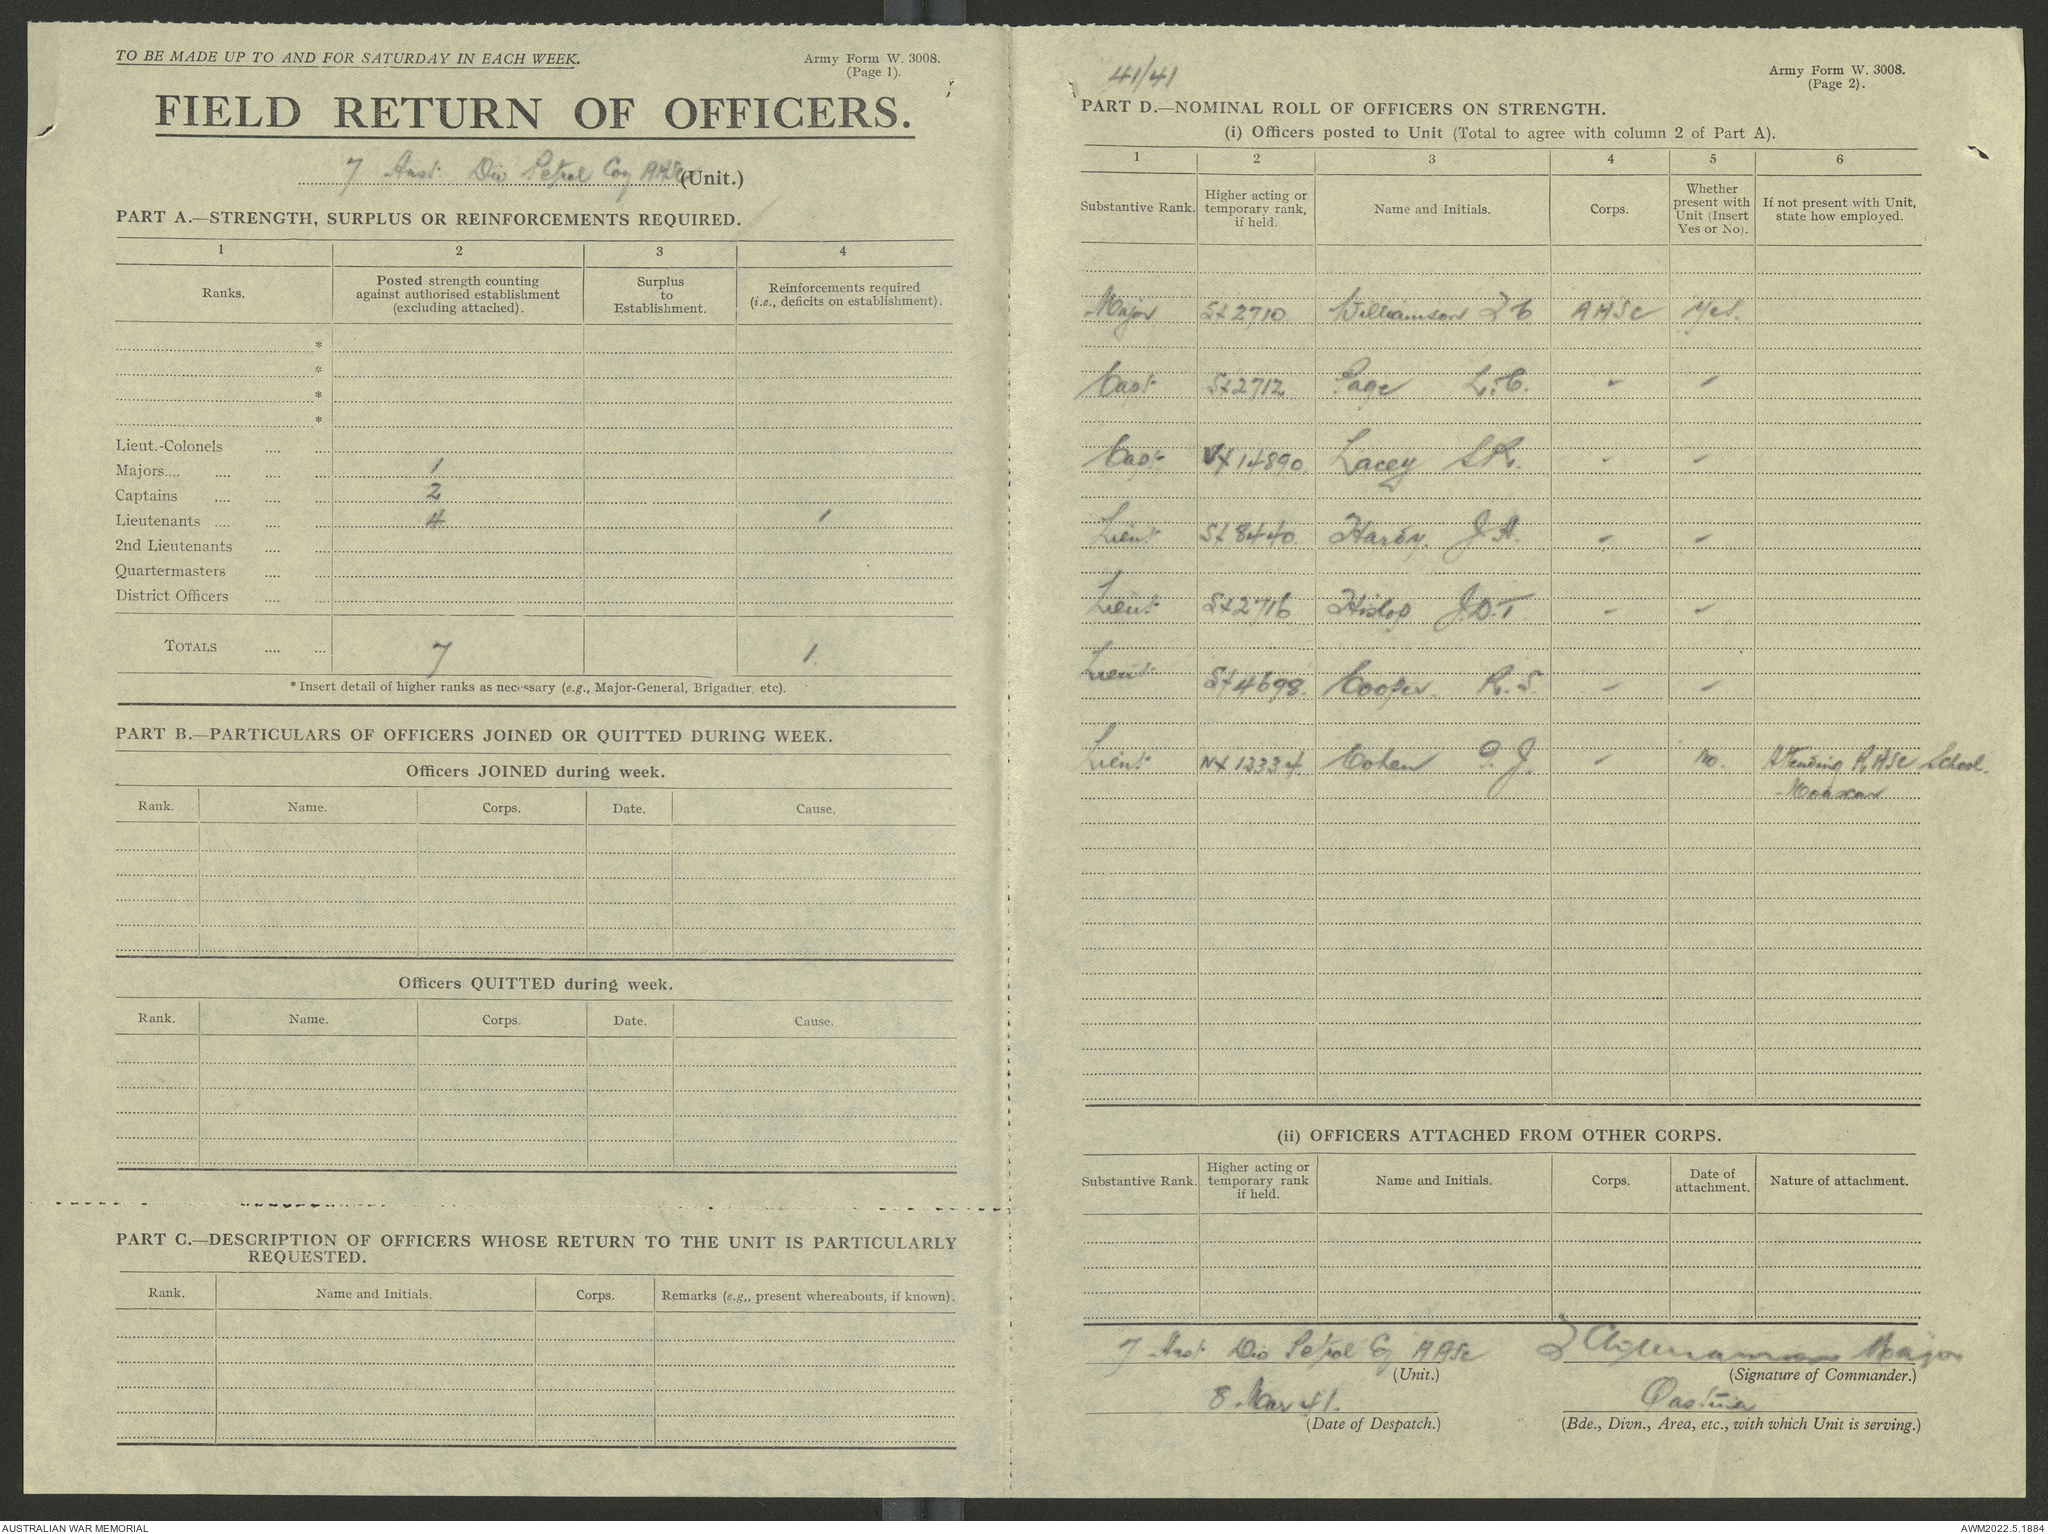 TO BE MADE UP TO AND FOR SATURDAY IN EACH WEEK.
Army Form W. 3008.
(Page 1).
FIELD RETURN OF OFFICERS.
7 Aust Div Petrol Coy AASC (Unit.)
PART A.—STRENGTH, SURPLUS OR REINFORCEMENTS REQUIRED.
1 2 3 4
Ranks. Posted strength counting against authorised establishment (excluding attached). Surplus to Establishment. Reinforcements required (i.e., deficits on establishment).
*
*
*
*
Lieut.-Colonels .... ...
Majors.... .... .... ... 1
Captains .... .... ... 2
Lieutenants .... .... ... 4 1
2nd Lieutenants .... ...
Quartermasters .... ...
District Officers .... ...
TOTALS .... ... 7 1.
* Insert detail of higher ranks as necessary (e.g., Major-General, Brigadier, etc).
PART B.—PARTICULARS OF OFFICERS JOINED OR QUITTED DURING WEEK.
Officers JOINED during week.
Rank. Name. Corps. Date. Cause.
Officers QUITTED during week.
Rank. Name. Corps. Date. Cause.
PART C.—DESCRIPTION OF OFFICERS WHOSE RETURN TO THE UNIT IS PARTICULARLY
REQUESTED.
Rank. Name and Initials. Corps. Remarks (e.g,, present whereabouts, if known).
41/41
Army Form W. 3008.
(Page 2).
PART D.—NOMINAL ROLL OF OFFICERS ON STRENGTH.
(i) Officers posted to Unit (Total to agree with column 2 of Part A).
1 2 3 4 5 6
Substantive Rank. Higher acting or temporary rank, if held. Name and Initials. Corps. Whether present with Unit (Insert Yes or No). If not present with Unit, state how employed.
Major SX2710 Williamson AASC Yes.
Capt SX2712 Page L.C. " "
Capt VX14890 Lacey S.R. " "
Lieut SX8440 Hardy. J.H. " "
Lieut SX2716 Hislop J.D.T " "
Lieut SX4698 Cooper R.S. " "
Lieut NX12334 Cohen G.J. " No. Attending RASC School.
Moascar
(ii) OFFICERS ATTACHED FROM OTHER CORPS.
Substantive Rank. Higher acting or temporary rank if held. Name and Initials. Corps. Date of attachment. Nature of attachment.
7 Aust Div Petrol Coy AASC Major
(Unit.) (Signature of Commander.)
8 Mar 41. Qastina
(Date of Despatch.) (Bde., Divn., Area, etc., with which Unit is serving.)
AUSTRALIAN WAR MEMORIAL
AWM2022.5.1884